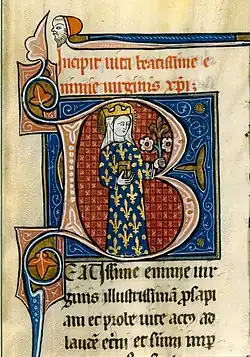 Incipit uita beatissime e
nimie uirginis xpi:
BEATissime enimie uir
ginis illustissimā psapi
am et prole uite actꝰ ad
laudē et̄ni et sūmi imp